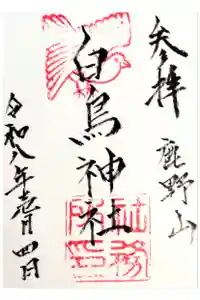 参拝
鹿野山
白鳥神社
社務所印
令和八年壱月四日